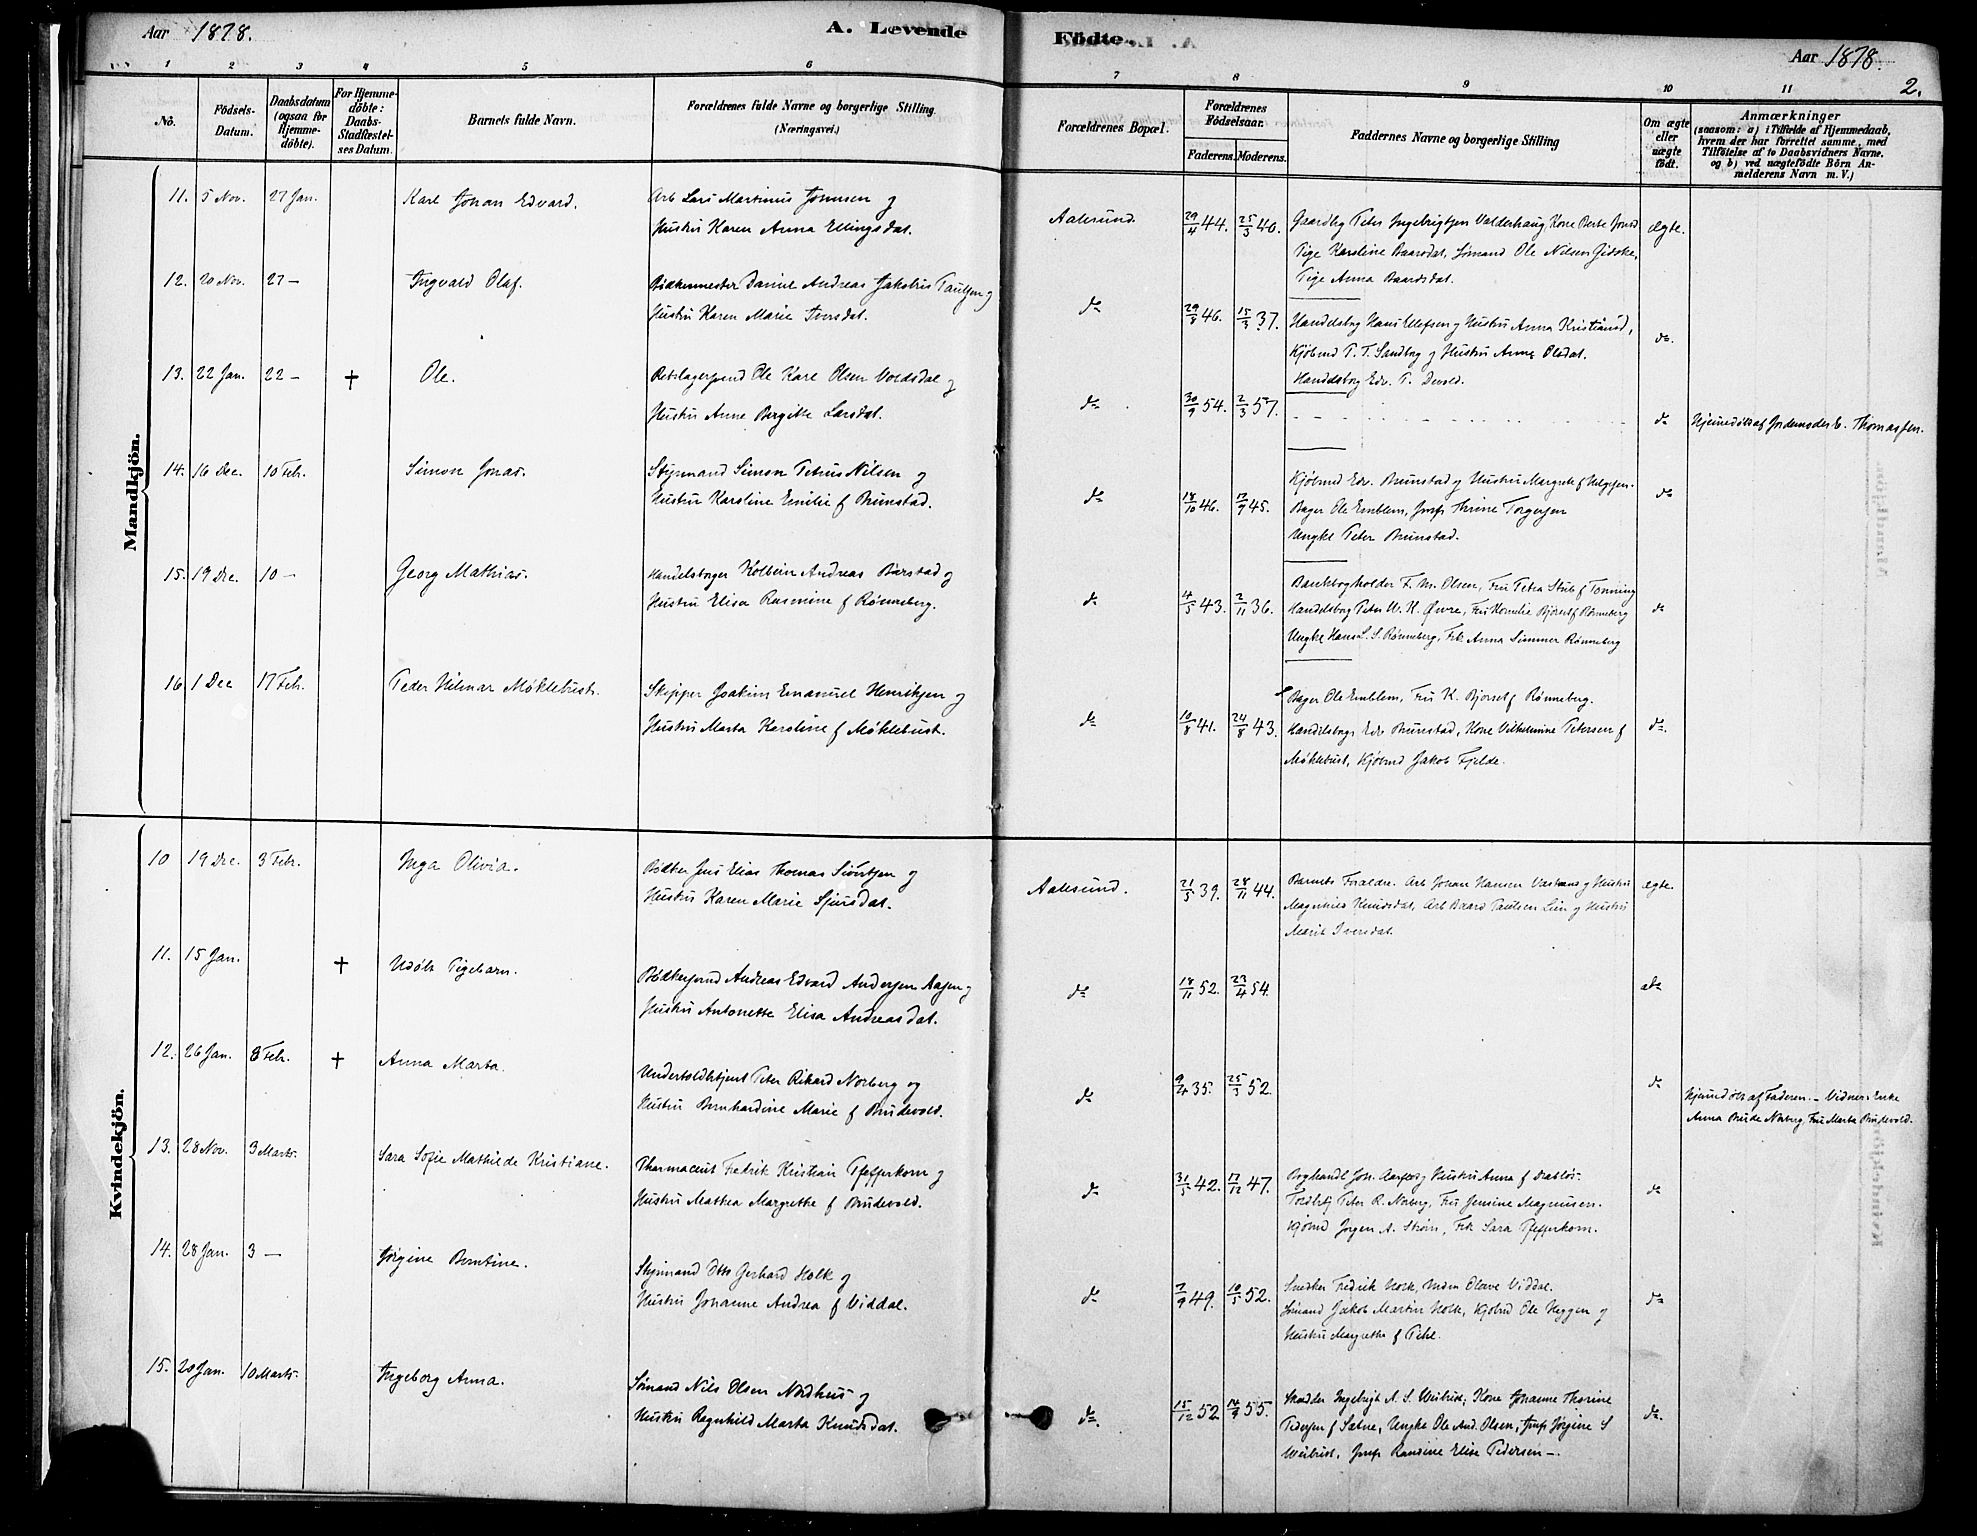 Aar 1878.
A. Levende Fødte.
Aar 1878.
2.
1 2 3 4 5 6 7 8 9 10 11
No.
Födsels-Datum.
Daabsdatum (ogsaa for Hjemmedöbte).
For Hjemmedöbte: Daabs-Stadfæstelses Datum.
Barnets fulde Navn.
Forældrenes fulde Navne og borgerlige Stilling (Næringsvei.)
Forældrenes Bopæl.
Forældrenes Födselsaar.
Faderens. Moderens.
Faddernes Navne og borgerlige Stilling
Om ægte eller uægte födt.
Anmærkninger
(saasom: a) i Tilfælde af Hjemmedaab, hvem der har forrettet samme, med Tilföielse af to Daabsvidners Navne, og b) ved uægtefödte Börn Anmelderens Navn m. V.)
Mandkjön.
11. 5 Nov. 27 Jan. Karl Johan Edvard. Arb Lars Martinus Jonsen og
Hustru Karen Anna Ellingsdat.
Aalesund. 29/4 44. 25/3 46. Peter Ingebrigtsen Valderhaug, Kone Berte
Pige Karoline Baardsdat, Sømand Ole Nilsen Gidske,
Pige Anna Baardsdat.
ægte.
12. 20 Nov. 27 – Ingvald Olaf. Bødkermester Daniel Andreas Jakobus Paulsen og
Hustru Karen Marie Iversdat.
do 29/8 46. 15/3 37. Handelsborg Hans Ellefsen og Hustru Anna Kristiansd,
Kjøbmd P. T. Sandborg og Hustru Anne Olsdat.
Handelsborg Edv. T. Devold.
do.
13. 22 Jan. 22 – † Ole. Rebslagersvend Ole Karl Olsen Voldsdal og
Hustru Anne Bergitte Larsdat.
do 30/9 54. 2/3 57. do Hjemmedøbt af Jordemoder E. Thomassen.
14. 16 Dec. 10 Feb. Simon Jonas. Styrmand Simon Petrus Nilsen og
Hustru Karoline Emilie f Brunstad.
do 18/10 46. 17/9 45. Kjøbmd Edv. Brunstad og Hustru Margrete f Helgesen.
Bager Ole Emblem, Jomfr Thrine Torgersen
Ungke Peter Brunstad.
do
15. 19 Dec. 10 – Georg Mathias. Handelsborger Kolbein Andreas Bjørstad og
Hustru Elisa Rasmine f Rønneberg.
do 4/5 43. 2/11 36. Bankbogholder F. M. Olsen, Fru Petra Stub f Tønning
Handelsborg Peter W. K. Øwre, Fru Kornelia Bjørset f Rønneberg
Ungke Hans L. S. Rønneberg, Frk Anna Rønneberg
do
16 1 Dec 17 Feb. Peder Hilmar Møklebust. Skipper Joakim Emanuel Henriksen og
Hustru Marta Karoline f Møklebust.
do 10/8 41. 24/8 43. Bager Ole Emblem, Fru K. Bjorset f Rønneberg.
Handelsborg Edv Brunstad, Kone Vilhelmine Petersen f
Møklebust, Kjøbmd Jakob Fjelde.
do.
Kvindekjön.
10 19 Dec. 3 Feb. Inga Olivia. Bødker Jens Elias Thomas Sivertsen og
Hustru Karen Marie Sjursdat.
Aalesund. 21/5 39. 28/11 44. Barnets Forældre. Arb Johan Hansen og Hustru
Magnhild Knudsdat, Arb Baard Paulsen Lien og Hustru
Marit Iversdat.
ægte.
11. 15 Jan. † Udøbt Pigebarn. Bødkersvend Andreas Edvard Andersen Aasen og
Hustru Antonette Elisa Andreasdat.
do 18/11 52. 23/4 54. do
12. 26 Jan. 8 Feb. † Anna Marta. Undertoldbetjent Peter Rikard Norberg og
Hustru Bernhardine Marie f Brudevold.
do 9/4 35. 25/3 52. do Hjemmedøbt af Faderen. – Vidner: Enke
Anna Norberg, Fru Marta Brudevold.
13. 28 Nov. 3 Marts. Sara Sofie Mathilde Kristiane. Pharmaceut Fredrik Kristian Pfefferkorn og
Hustru Mathea Margrethe f Brudevold.
do 31/5 42. 17/12 47. Boghandl Joh. Aarflot og Hustru Anna f
Peter R. Norberg, Fru Jensine Magnusen.
Kjøbmd Jørgen A. Strøm, Frk Sara Pfefferkorn.
do
14. 28 Jan. 3 – Jørgine Berntine. Styrmand Otto Gerhard Holk og
Hustru Johanne Andrea f Viddal.
do 7/9 49. 10/5 52. Snedker Fredrik Holk, Olave Viddal.
Sømand Jakob Martin Holk, Kjøbmd Ole Heggen og
Hustru Margrethe f Pihl.
do
15. 20 Jan. 10 Marts. Ingeborg Anna. Sømand Nils Olsen Nordhus og
Hustru Ragnhild Marta Knudsdat.
do. 15/12 52 14/9 55. Skrædder Ingebrigt A. S. Weibust, Kone Johanne Thorine
Pedersen f Sætre, Ungke Ole And. Olsen, Jomfr Jørgine S
Weibust, Jomfr Randine Elise Pedersen –.
do.